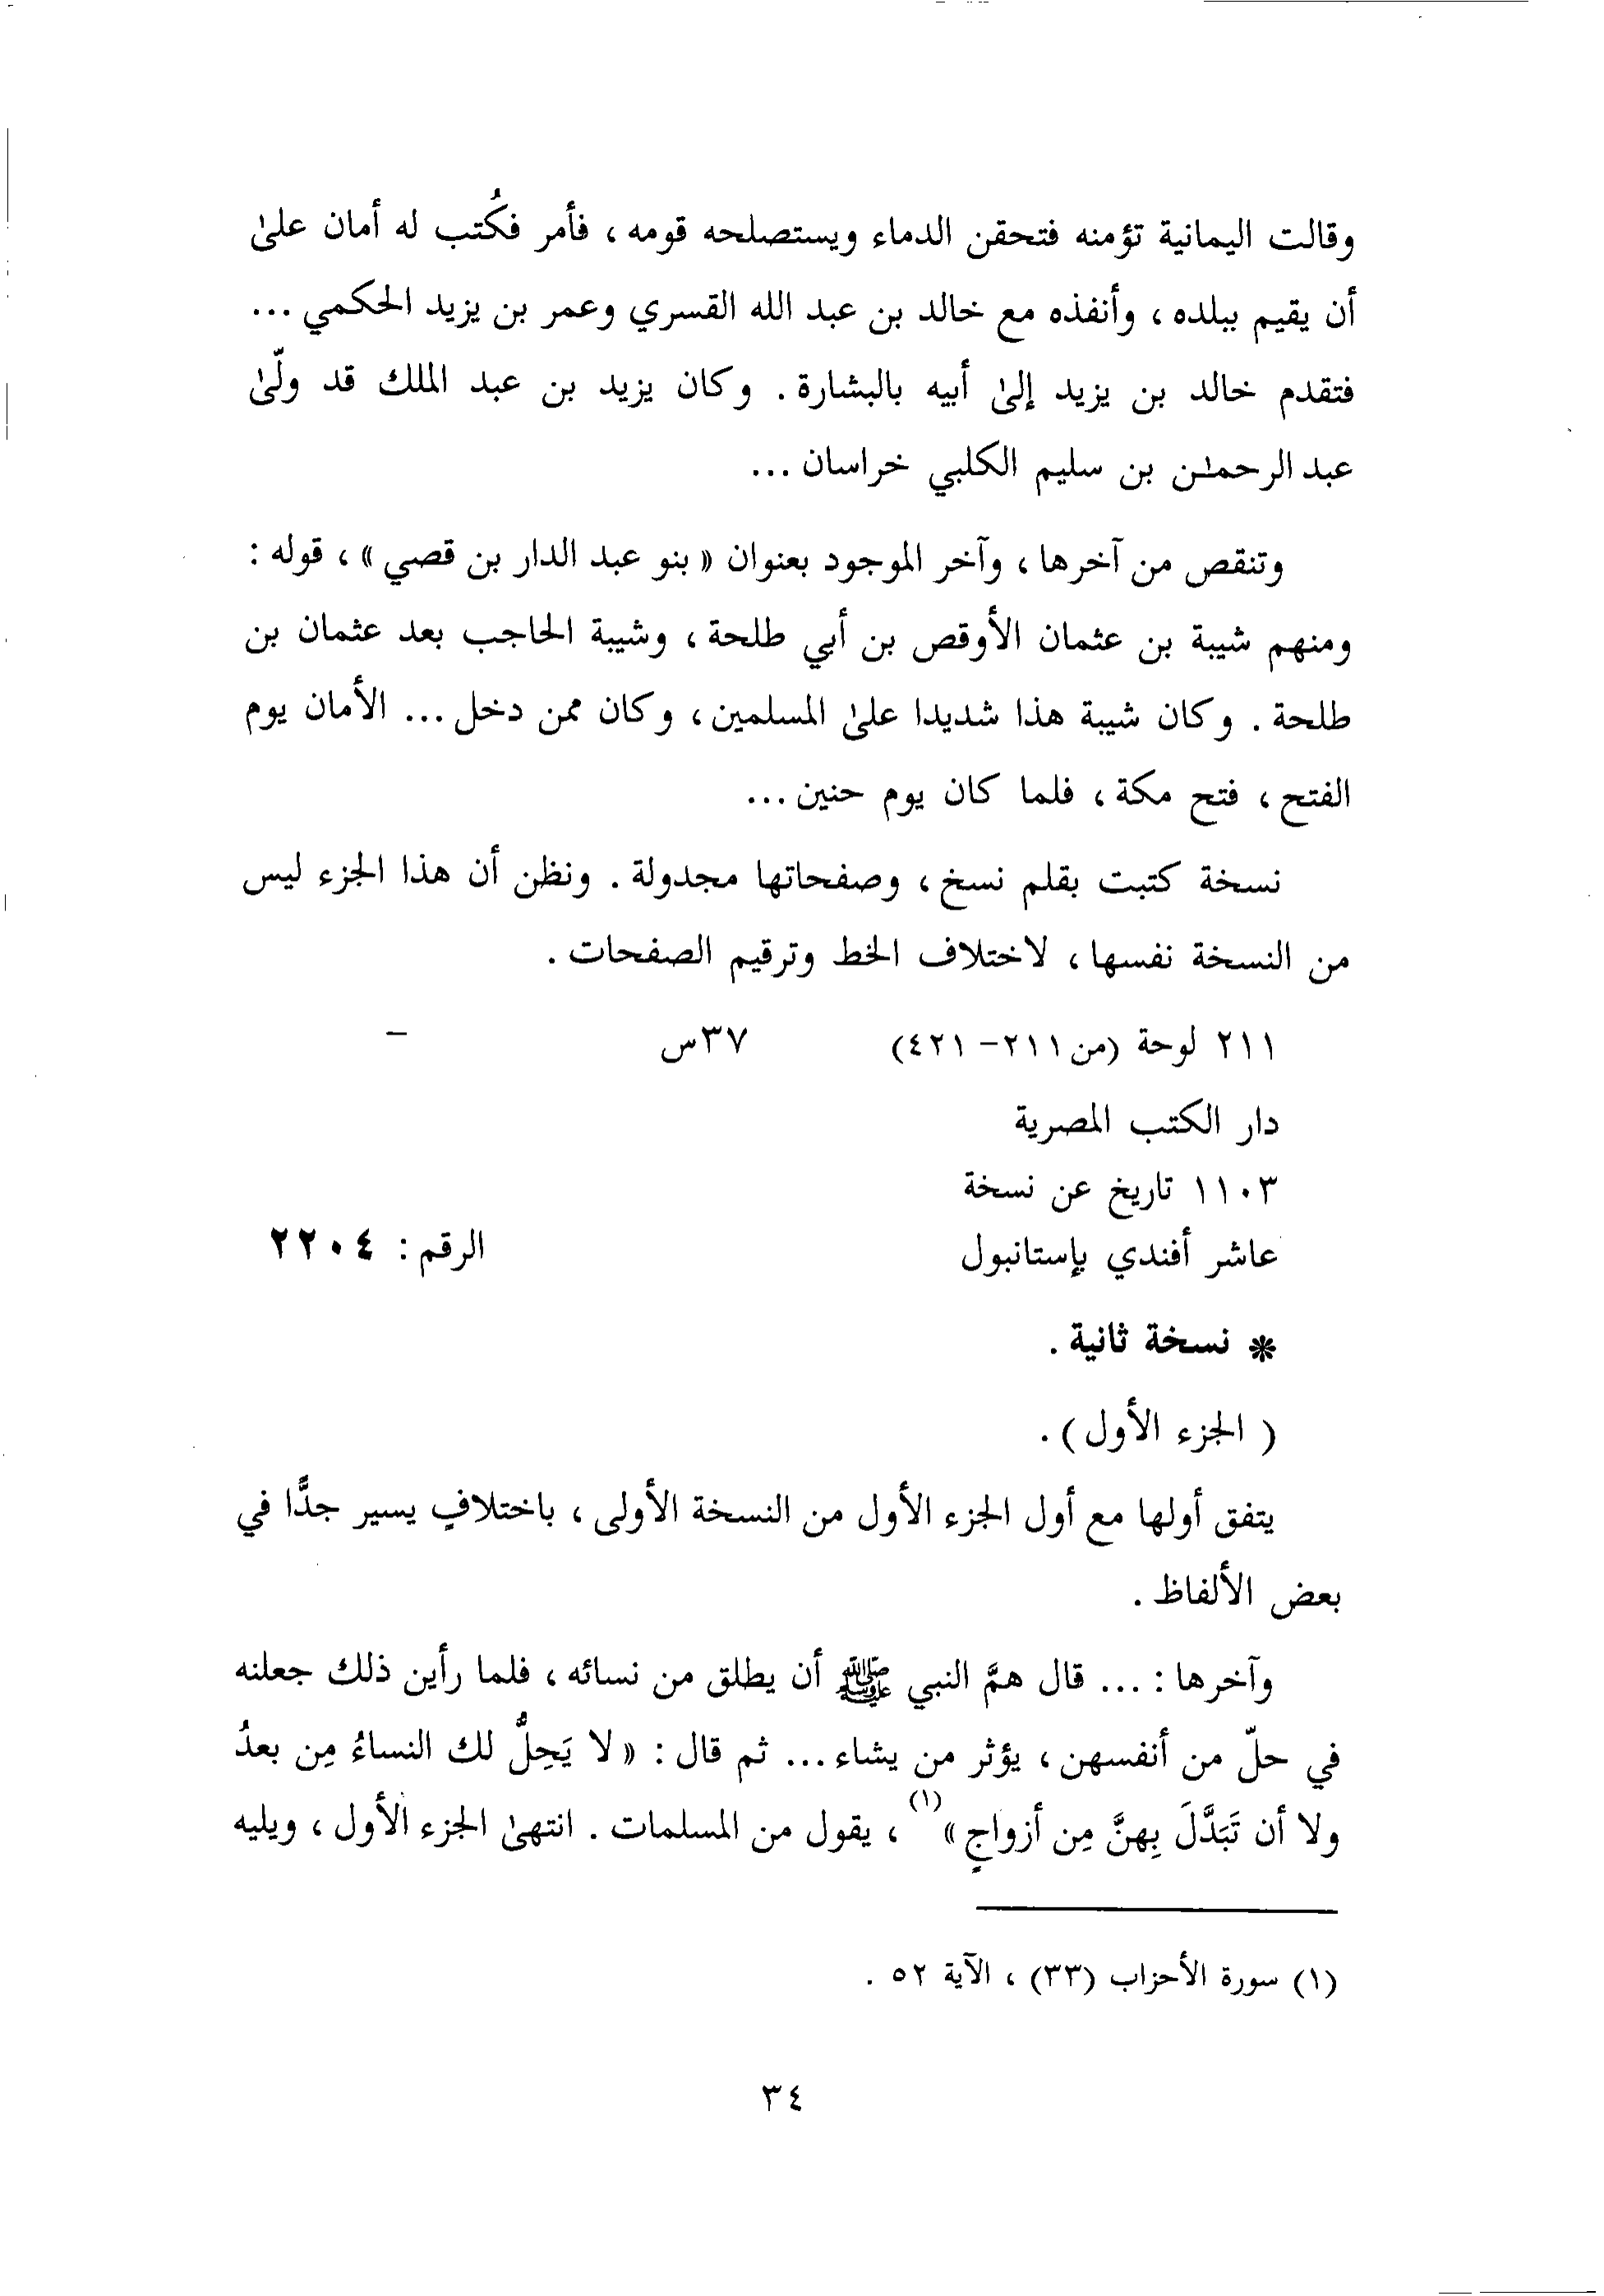 وقالت اليمانية تؤمنه فتحقن الدماء ويستصلحه قومه ، فأمر فكُتب له أمان علىٰ
أن يقيم ببلده ، وأنفذه مع خالد بن عبد الله القسري وعمر بن يزيد الحكمي ...
فتقدم خالد بن يزيد إلىٰ أبيه بالبشارة . وكان يزيد بن عبد الملك قد ولّىٰ
عبد الرحمـٰن بن سليم الكلبي خراسان ...
وتنقص من آخرها ، وآخر الموجود بعنوان « بنو عبد الدار بن قصي » ، قوله :
ومنهم شيبة بن عثمان الأوقص بن أبي طلحة ، وشيبة الحاجب بعد عثمان بن
طلحة . وكان شيبة هذا شديدا علىٰ المسلمين ، وكان ممن دخل ... الأمان يوم
الفتح ، فتح مكة ، فلما كان يوم حنين ...
نسخة كتبت بقلم نسخ ، وصفحاتها مجدولة . ونظن أن هذا الجزء ليس
من النسخة نفسها ، لاختلاف الخط وترقيم الصفحات .
٢١١ لوحة (من ٢١١ – ٤٢١) ٣٧س –
دار الكتب المصرية
١١٠٣ تاريخ عن نسخة
عاشر أفندي بإستانبول الرقم : ٢٢٠٤
* نسخة ثانية .
( الجزء الأول ) .
يتفق أولها مع أول الجزء الأول من النسخة الأولى ، باختلافٍ يسير جدًّا في
بعض الألفاظ .
وآخرها : ... قال همَّ النبي ﷺ أن يطلق من نسائه ، فلما رأين ذلك جعلنه
في حلّ من أنفسهن ، يؤثر من يشاء ... ثم قال : « لا يَحِلُّ لك النساءُ مِن بعدُ
ولا أن تَبَدَّلَ بِهنَّ مِن أزواجٍ » (١) ، يقول من المسلمات . انتهىٰ الجزء الأول ، ويليه
(١) سورة الأحزاب (٣٣) ، الآية ٥٢ .
٣٤